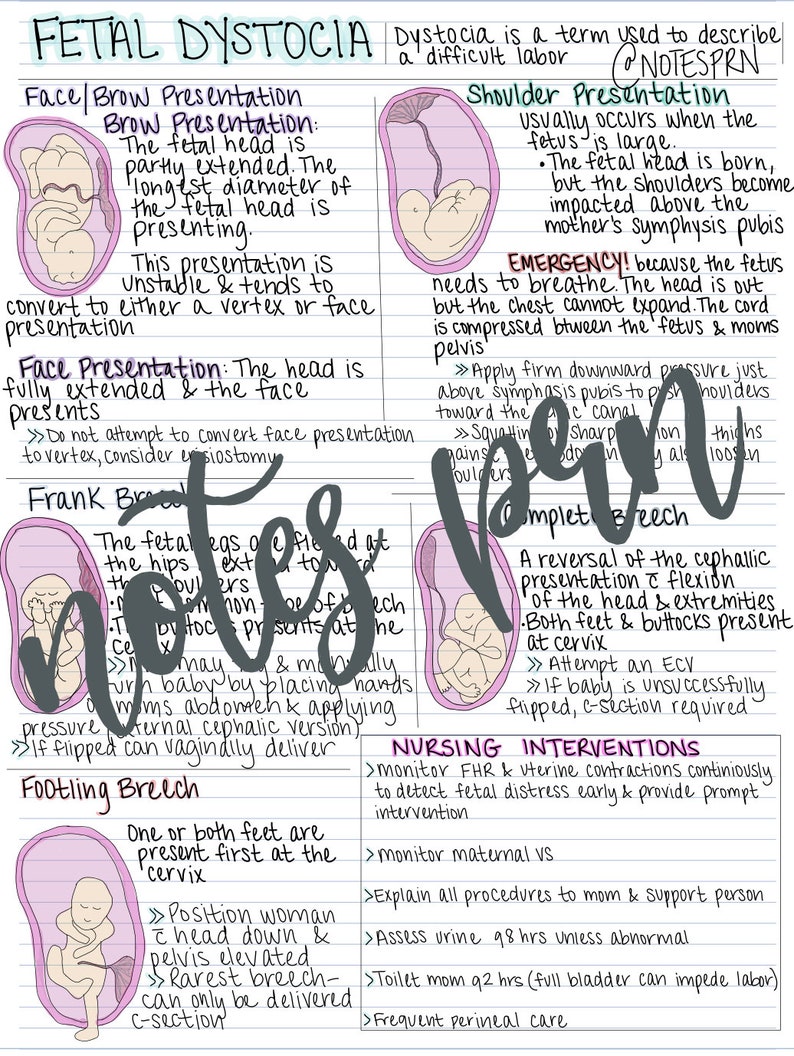 FETAL DYSTOCIA
Dystocia is a term used to describe
a difficult labor
@NOTESPRN
Face/Brow Presentation
Brow Presentation:
The fetal head is
partly extended. The
longest diameter of
the fetal head is
presenting.
This presentation is
unstable & tends to
convert to either a vertex or face
presentation
Face Presentation: The head is
fully extended & the face
presents
>> Do not attempt to convert face presentation
to vertex, consider episiostomy
Shoulder Presentation
usually occurs when the
fetus is large.
• The fetal head is born,
but the shoulders become
impacted above the
mother's symphysis pubis
EMERGENCY! because the fetus
needs to breathe. The head is out
but the chest cannot expand. The cord
is compressed btween the fetus & moms
pelvis
>> Apply firm downward pressure just
above symphasis pubis to push shoulders
toward the canal
>> Squatting or sharp thighs
against may also loosen
shoulders
Frank Breech
The fetal legs are flexed at
the hips & extend toward
the shoulders
• Most common type of breech
• The buttocks presents at the
cervix
>> may & manually
turn baby by placing hands
on moms abdomen & applying
pressure (external cephalic version)
>> If flipped can vaginally deliver
Complete Breech
A reversal of the cephallic
presentation c̄ flexion
of the head & extremities
• Both feet & buttocks present
at cervix
>> Attempt an ECV
>> If baby is unsuccessfully
flipped, c-section required
Footling Breech
One or both feet are
present first at the
cervix
>> Position woman
c̄ head down &
pelvis elevated
>> Rarest breech-
can only be delivered
c-section
NURSING INTERVENTIONS
> monitor FHR & uterine contractions continiously
to detect fetal distress early & provide prompt
intervention
> monitor maternal VS
> Explain all procedures to mom & support person
> Assess urine q8 hrs unless abnormal
> Toilet mom q2 hrs (full bladder can impede labor)
> Frequent perineal care
notes prn